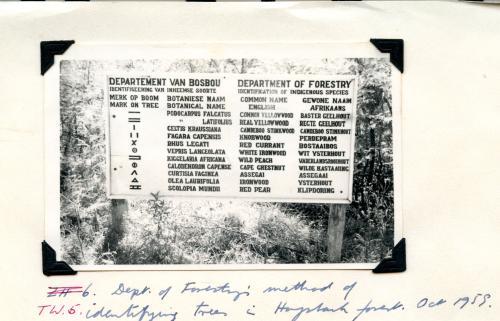 DEPARTEMENT VAN BOSBOU DEPARTMENT OF FORESTRY
IDENTIFISERING VAN INHEEMSE SOORTE IDENTIFICATION OF INDIGENOUS SPECIES
MERK OP BOOM BOTANIESE NAAM COMMON NAME GEWONE NAAM
MARK ON TREE BOTANICAL NAME ENGLISH AFRIKAANS
PODOCARPUS FALCATUS COMMON YELLOWWOOD BASTER GEELHOUT
" LATIFOLIUS REAL YELLOWWOOD REGTE GEELHOUT
CELTIS KRAUSSIANA CAMDEBOO STINKWOOD CAMDEBOO STINKHOUT
FAGARA CAPENSIS KNOBWOOD PERDEPRAM
RHUS LEGATI RED CURRANT BOSTAAIBOS
VEPRIS LANCEOLATA WHITE IRONWOOD WIT YSTERHOUT
KIGGELARIA AFRIKANA WILD PEACH
CALODENDRON CAPENSE CAPE CHESTNUT WILDE KASTAIING
CURTISIA FAGINEA ASSEGAI ASSEGAAI
OLEA LAURIFOLIA IRONWOOD YSTERHOUT
SCOLOPIA MUNDII RED PEAR KLIPDORING
6. Dept. of Forestry's method of
T.W.6. identifying trees in Hogsback forest. Oct 1955.